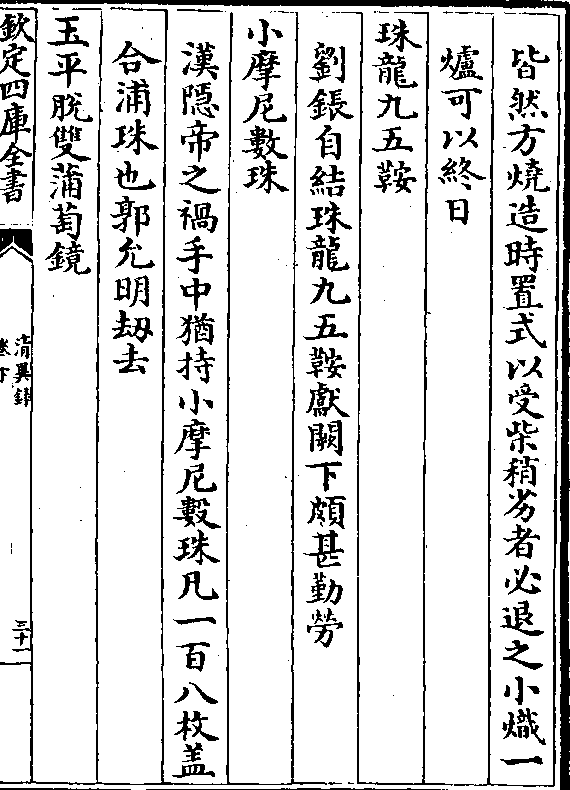 皆然方燒造時置式以受柴稍劣者必退之小熾一
爐可以終日
珠龍九五鞍
劉鋹自結珠龍九五鞍獻闕下頗甚勤勞
小摩尼數珠
漢隠帝之禍手中猶持小摩尼數珠凡一百八枚盖
合浦珠也郭允明刼去
玉平脫雙蒲萄鏡
欽定四庫全書
清異錄
卷下
三十一